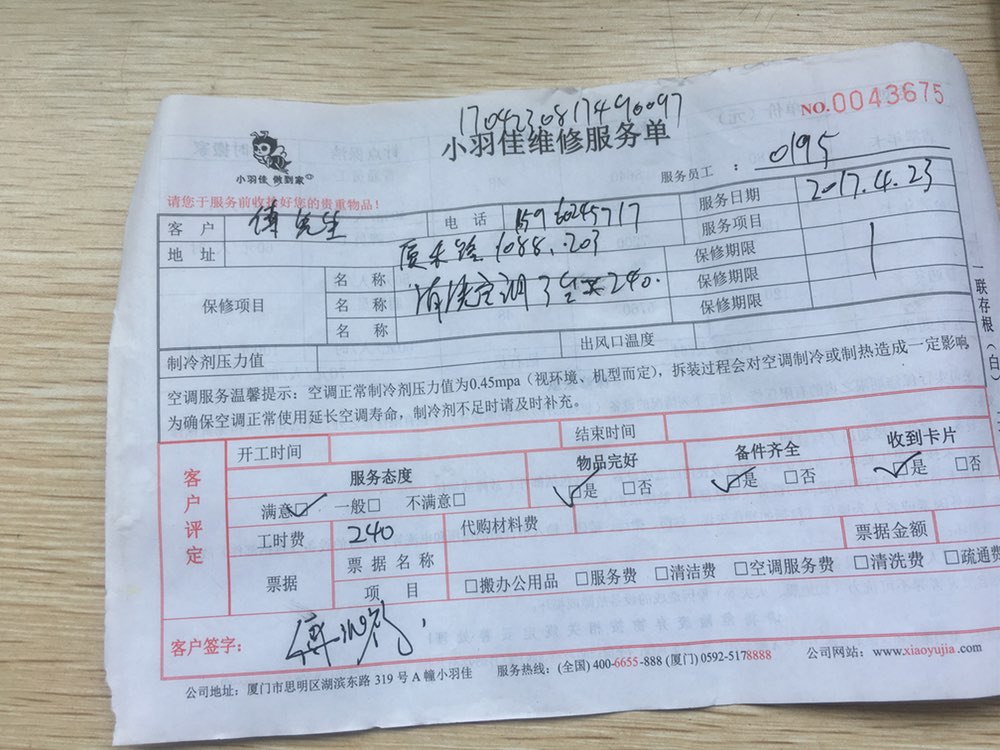 17042308174490097
NO.0043675
小羽佳 做到家
小羽佳维修服务单
服务员工 : 0195
请您于服务前收捡好您的贵重物品！
客 户 傅先生 电 话 15960245717 服务日期 2017.4.23
地 址 厦禾路1088.203 服务项目
保修项目
名 称 清洗空调3台共240. 保修期限
名 称 保修期限
名 称 保修期限
一联存根（白）
制冷剂压力值 出风口温度
空调服务温馨提示：空调正常制冷剂压力值为0.45mpa（视环境、机型而定），拆装过程会对空调制冷或制热造成一定影响
为确保空调正常使用延长空调寿命，制冷剂不足时请及时补充。
客户评定
开工时间 结束时间
服务态度 物品完好 备件齐全 收到卡片
满意☑ 一般□ 不满意□ ☑是 □否 ☑是 □否 ☑是 □否
工时费 240 代购材料费
票据 票据名称 票据金额
项 目 □搬办公用品 □服务费 □清洁费 □空调服务费 □清洗费 □疏通费
客户签字：
公司地址：厦门市思明区湖滨东路 319 号 A 幢小羽佳 服务热线：(全国) 400-6655-888 (厦门) 0592-5178888 公司网站：www.xiaoyujia.com